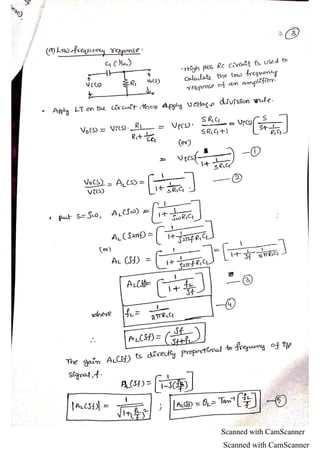 ③
(a) Low frequency response:
C1 (1/sC1)
Vi(s) R1 Vo(s)
• High pass RC circuit is used to
calculate the low frequency
response of an amplifier.
• Apply LT on the circuit, then apply voltage division rule.
Vo(s) = Vi(s). R1 / (R1 + 1/SC1) = Vi(s). SR1C1 / (SR1C1+1) = Vi(s) [S / (S + 1/R1C1)]
(or)
= Vi(s) (1 / (1 + 1/SR1C1)) — ①
Vo(s)/Vi(s) = AL(s) = [1 / (1 + 1/SR1C1)] — ②
• put s = jω, AL(jω) = [1 / (1 + 1/jωR1C1)]
AL(j2πf) = [1 / (1 + 1/j2πfR1C1)]
(or)
AL(jf) = [1 / (1 + 1/j2πfR1C1)] = [1 / (1 + 1/jf . 1/2πR1C1)]
AL(jf) = [1 / (1 + fL/jf)] — ③
where fL = 1/2πR1C1 — ④
∴ AL(jf) = (jf / (jf + fL))
The gain AL(jf) is directly proportional to frequency of i/p
signal, f.
AL(jf) = [1 / (1 - j(fL/f))]
|AL(jf)| = 1 / √(1 + (fL/f)²) ; |AL(jf) = θL = Tan⁻¹ [fL/f] — ⑤
Scanned with CamScanner
Scanned with CamScanner